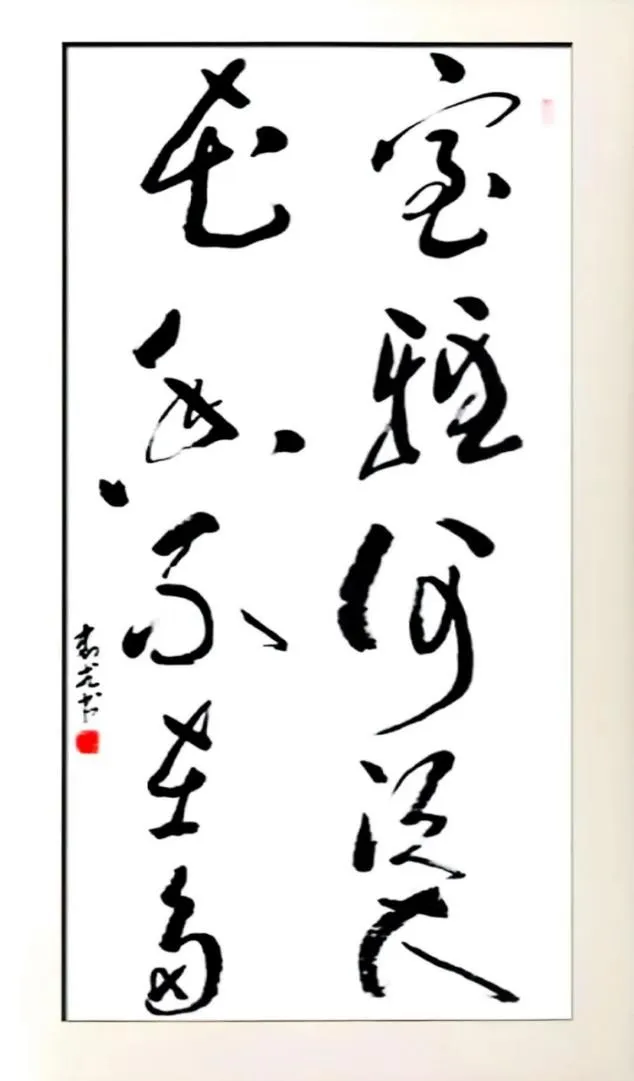 室雅何须大
花香不在多
书